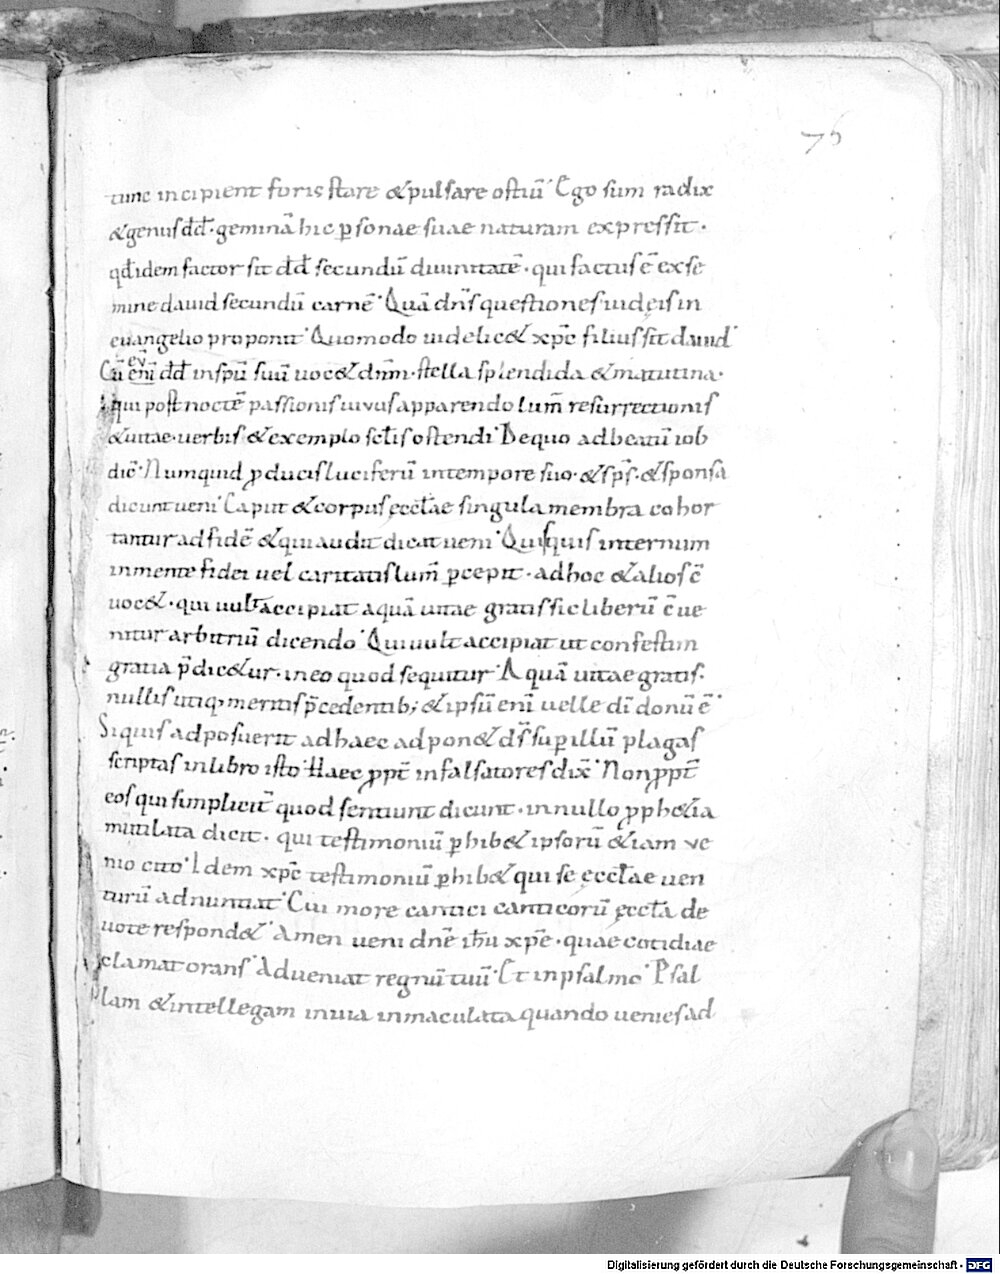 76
tunc incipient foris stare &pulsare ostiū Ego sum radix
&genus dd̄· geminā hic p̱sonae suae naturam expressit·
qđ idem factor sit dd̄ secundū diuinitatē· qui factus ē exse
mine dauid secundū carnē Quā dn̄s questiones iudęis in
euangelio proponit Quomodo uidelic& xp̄c filius sit dauid
ev̄
Cū enī dd̄ inspū suū uoc& dn̄m· stella splendida &matutina·
qui post noctē passionis uiuus apparendo lum̄ resurrectionis
&uitae uerbis &exemplo sc̄is ostendi Dequo adbeatū iob
dic̄ Numquid ꝓducis luciferū intempore suo· &sp̄s· &sponsa
dicunt ueni Caput &corpus ęccl̄ae singula membra cohor
tantur adfidē &qui audit dicat ueni Quisquis internum
inmente fidei uel caritatis lum̄ p̱cepit· adhoc &alios ē
uoc&· qui uult accipiat aquā uitae gratis sic liberū ē ue
nitur arbitriū dicendo Qui uult accipiat ut confestim
gratia p̄dic&ur· ineo quod sequitur Aquā uitae gratis·
nullis utiq; meritis p̄cedentib; &ipsū enī uelle dī donū ē
Siquis adposuerit adhaec adpon& ds̄ sup̱ illū plagas
scriptas inlibro isto Haec ꝓpt̄ infalsatores dix̄ Nonꝓpt̄
eos qui simplicit̄ quod sentiunt dicunt· innullo ꝓph&ia
mutilata dicit· qui testimoniū p̱hib& ipsorū &iam ve
nio cito Idem xp̄c testimoniū p̱hib& qui se ęccl̄ae uen
turū adnuntiat Cui more cantici canticorū ęccl̄a de
uote respond& Amen ueni dn̄e ih̄u xp̄e· quae cotidiae
clamat orans Adueniat regnū tuū Et inpsalmo Psal
lam &intellegam inuia inmaculata quando uenies ad
Digitalisierung gefördert durch die Deutsche Forschungsgemeinschaft - DFG